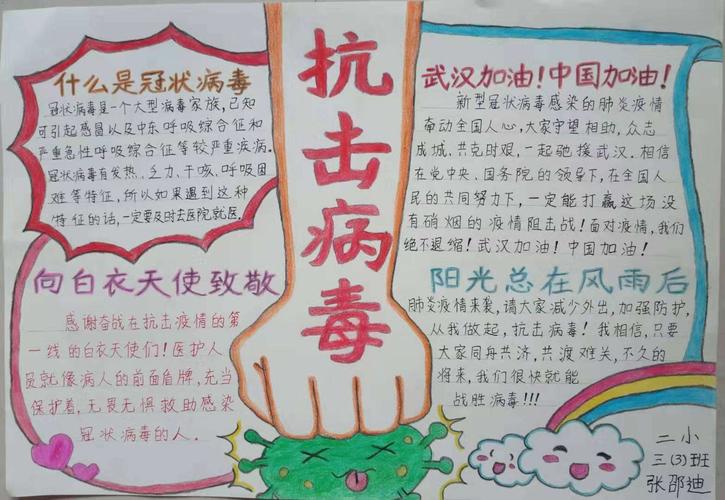 抗击病毒
什么是冠状病毒
冠状病毒是一个大型病毒家族,已知
可引起感冒以及中东呼吸综合征和
严重急性呼吸综合征等较严重疾病。
冠状病毒有发热、乏力、干咳、呼吸困
难等特征,所以如果遇到这种
特征的话,一定要及时去医院就医。
武汉加油!中国加油!
新型冠状病毒感染的肺炎疫情
牵动全国人心,大家守望相助,众志
成城,共克时艰,一起驰援武汉。相信
在党中央、国务院的领导下,在全国人
民的共同努力下,一定能打赢这场没
有硝烟的疫情阻击战!面对疫情,我们
绝不退缩!武汉加油!中国加油!
向白衣天使致敬
感谢奋战在抗击疫情的第
一线的白衣天使们!医护人
员就像病人的前面盾牌,充当
保护着,无畏无惧救助感染
冠状病毒的人。
阳光总在风雨后
肺炎疫情来袭,请大家减少外出,加强防护,
从我做起,抗击病毒!我相信,只要
大家同舟共济,共渡难关,不久的
将来,我们很快就能
战胜病毒!!!
二小
三(3)班
张邵迪